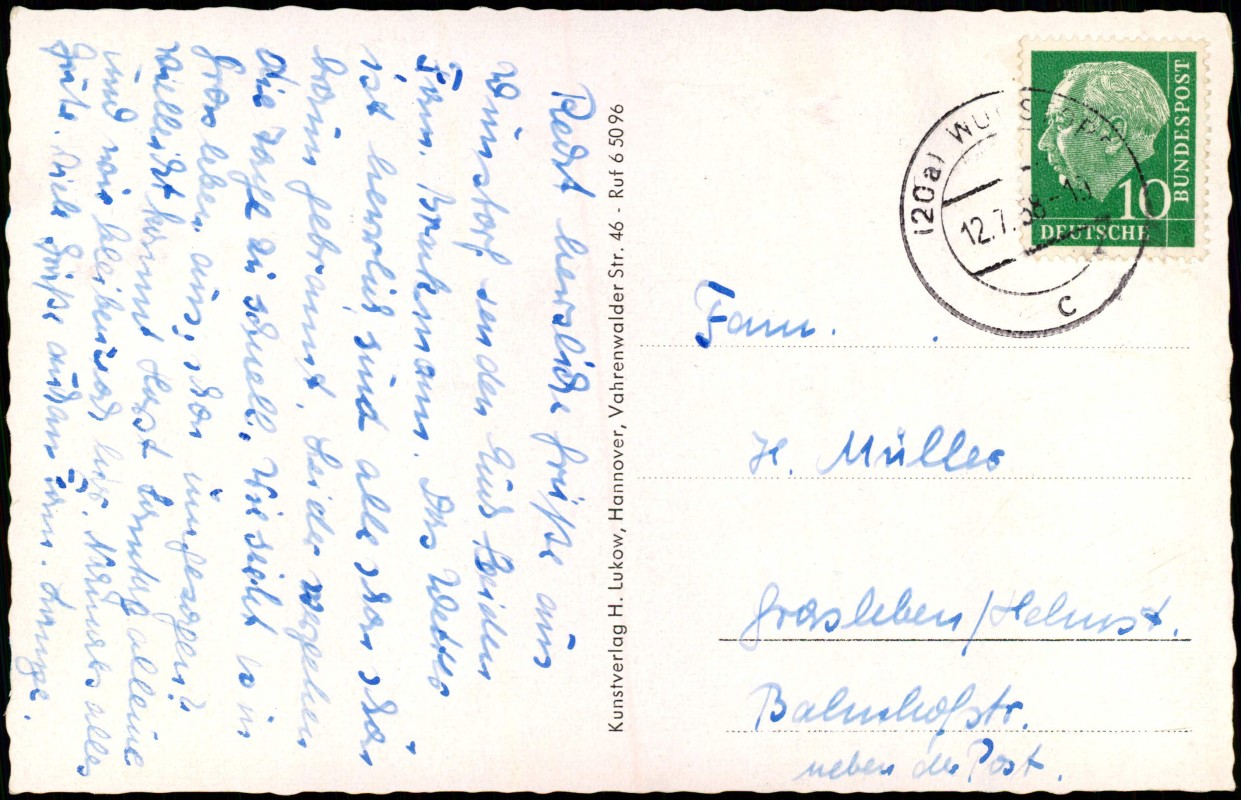 Recht herzliche Grüße aus
Wunstorf senden Euch beiden
Fam. Brankmann. Das Wetter
ist herrlich sind alle schon
braun gebrannt. Leider vergehen
die Tage zu schnell. Wie sieht es in
Grasleben aus, schon
vielleicht kommt Horst Sonntag alleine
und wir bleiben noch hier. Nun alles
Gute. Viele Grüße auch an
Kunstverlag H. Lukow, Hannover, Vahrenwalder Str. 46 - Ruf 6 50 96
(20a) WUNSTORF
12.7.58-19
c
10
DEUTSCHE
BUNDESPOST
Fam.
H. Müller
Grasleben/Helmst.
Bahnhofstr.
neben der Post.